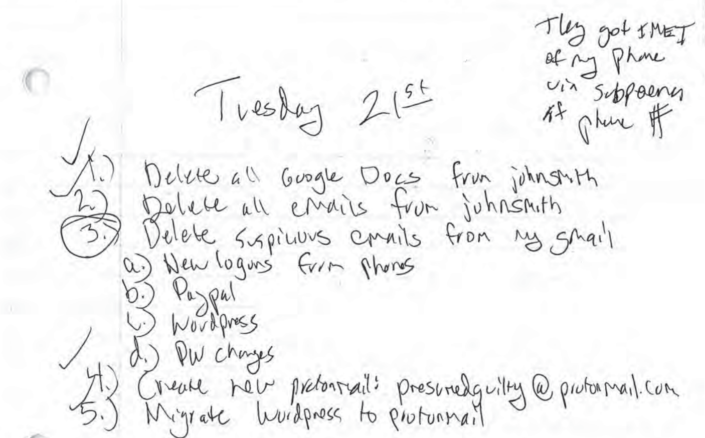 They got IMEI
of my phone
via subpoena
of phone #
Tuesday 21st
1.) Delete all Google Docs from johnsmith
2.) Delete all emails from johnsmith
3.) Delete suspicious emails from my gmail
a.) New logons from phones
b.) Paypal
c.) Wordpress
d.) PW changes
4.) Create new protonmail: presumedguilty@protonmail.com
5.) Migrate wordpress to protonmail